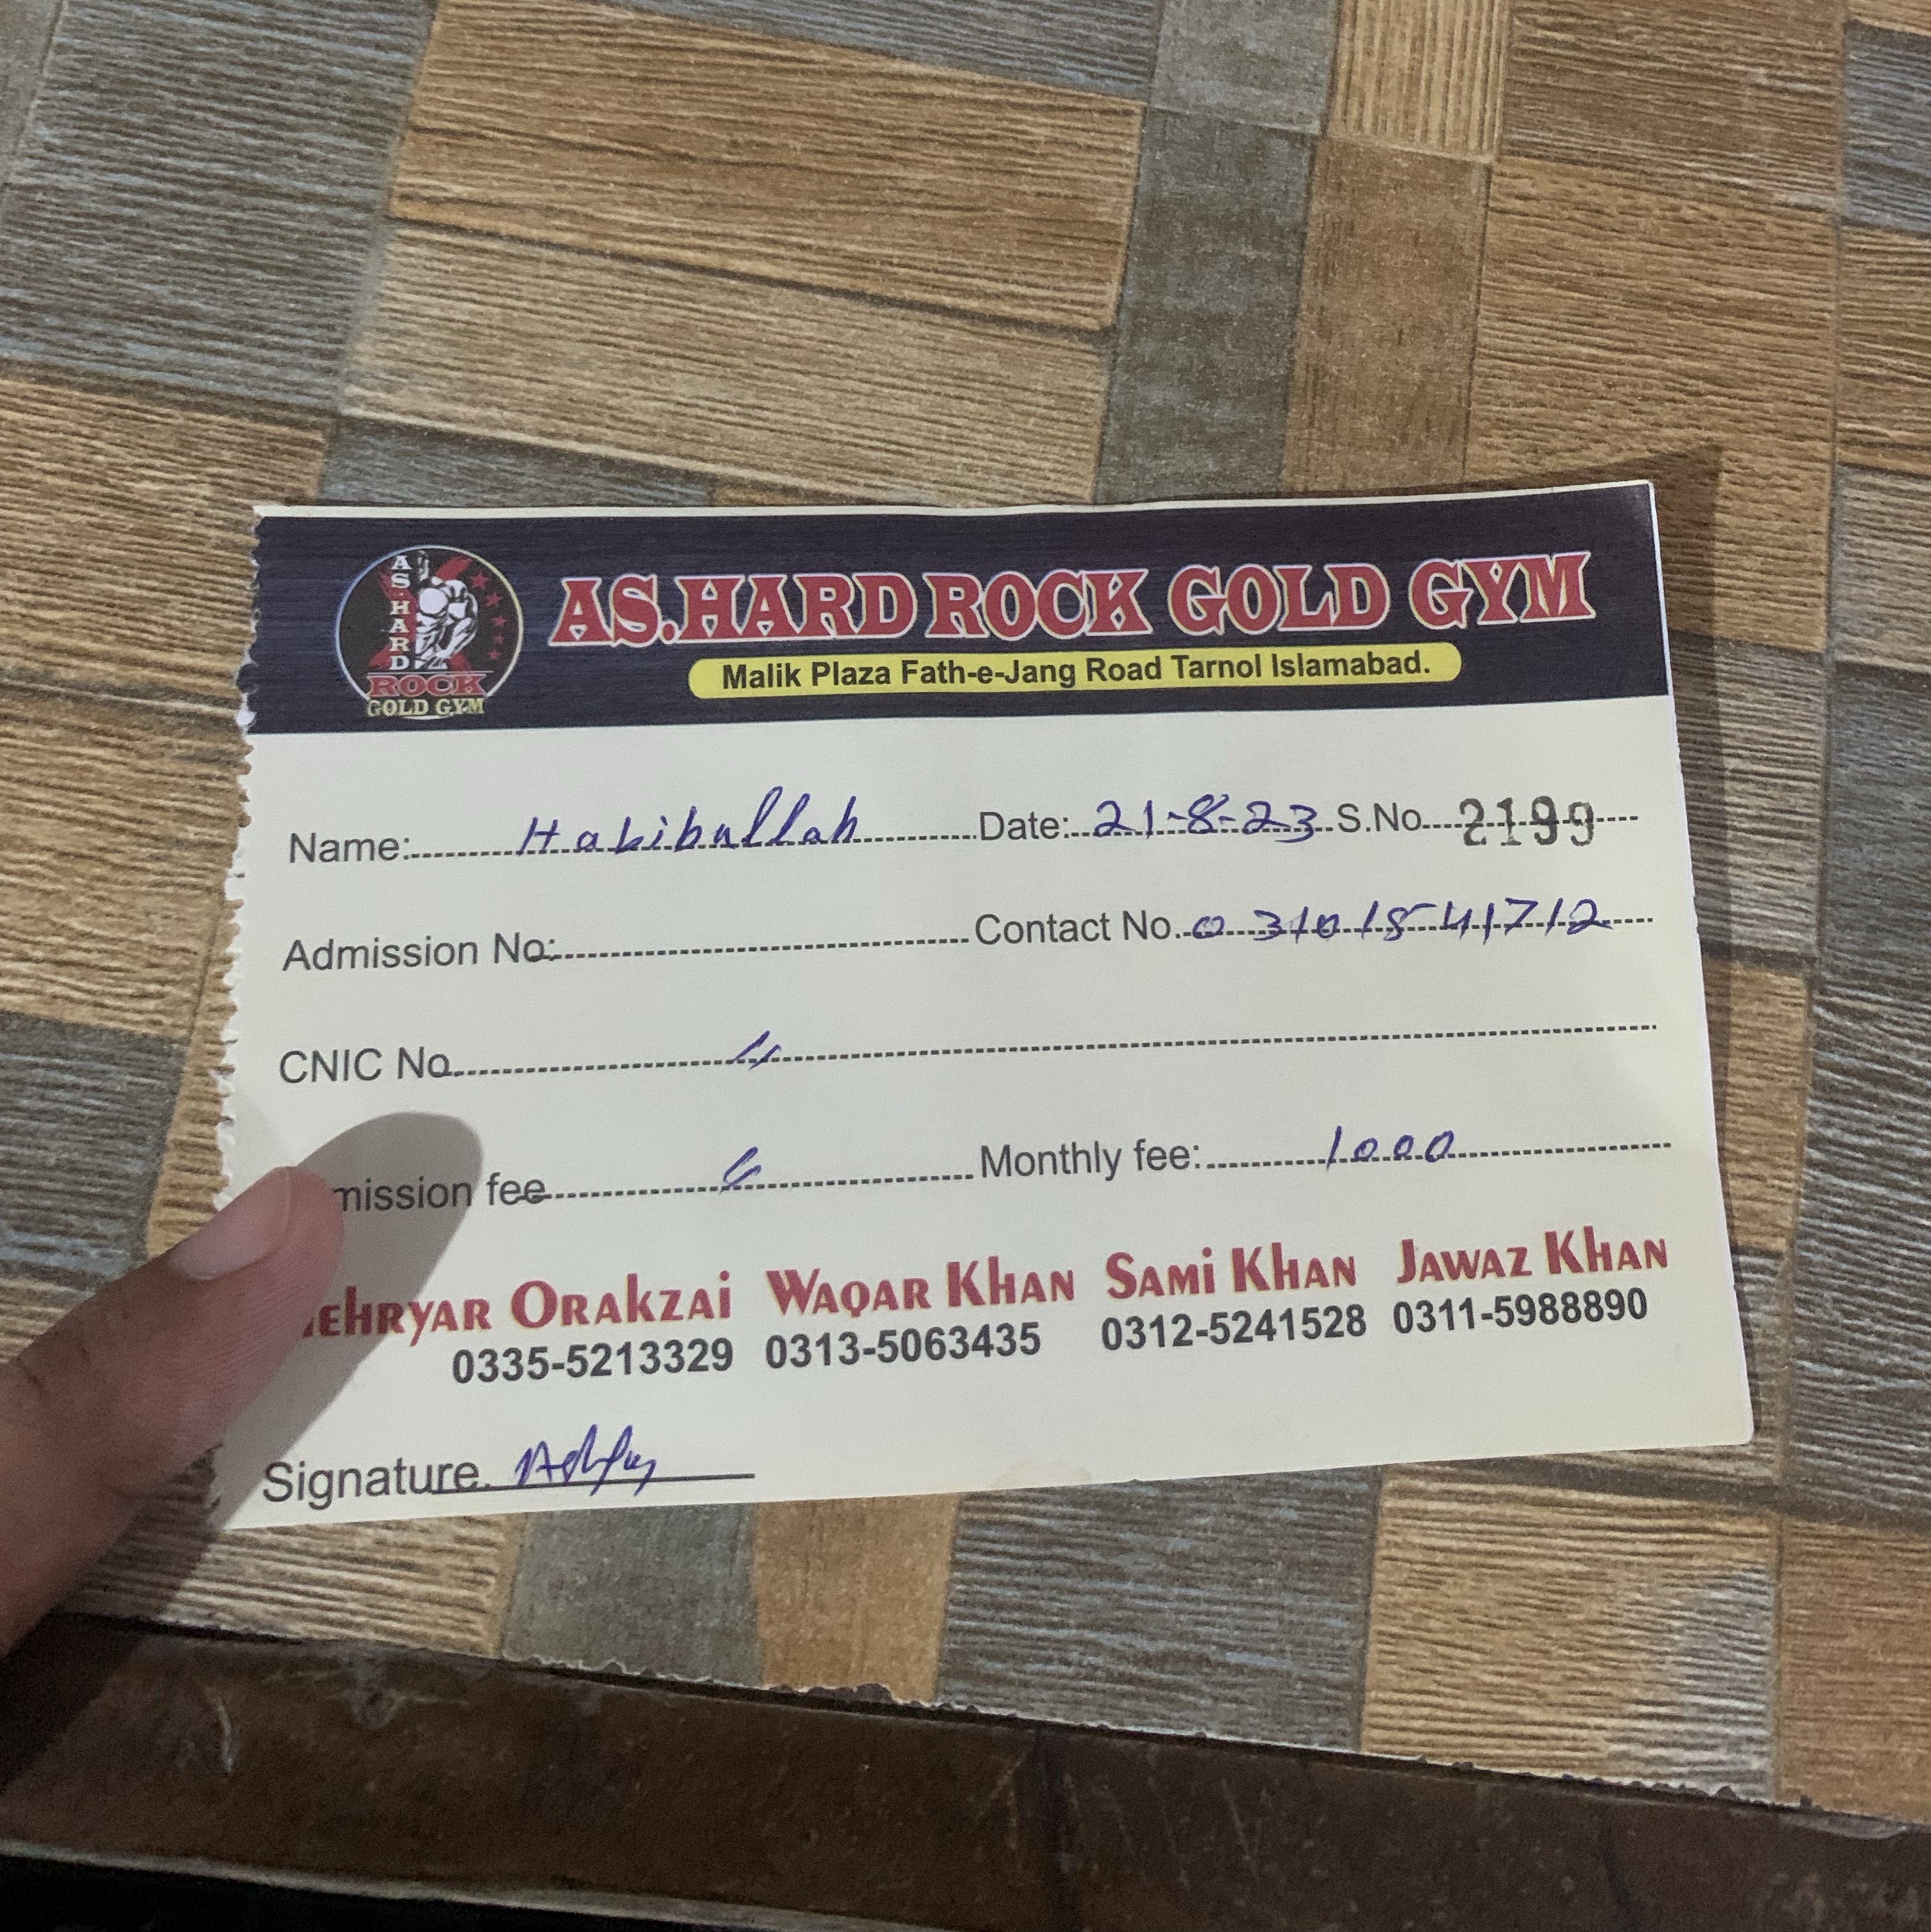 AS.HARD ROCK GOLD GYM
AS.HARD ROCK GOLD GYM
Malik Plaza Fath-e-Jang Road Tarnol Islamabad.
Name: Habibullah Date: 21-8-23 S.No 2199
Admission No: Contact No. 03101541712
CNIC No. 〃
mission fee 〃 Monthly fee: 1000
EHRYAR ORAKZAI WAQAR KHAN SAMI KHAN JAWAZ KHAN
0335-5213329 0313-5063435 0312-5241528 0311-5988890
Signature.